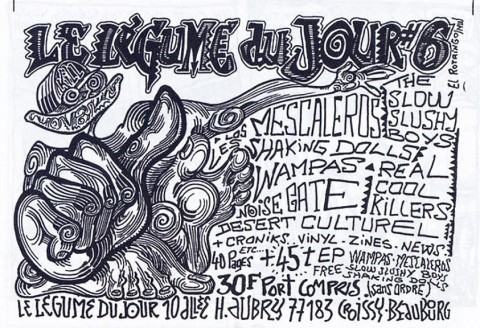 LE LÉGUME du JOUR #6
El Rotringo/1991
THE
SLOW
SLUSHY
BOYS
Los MESCALEROS
SHAKING DOLLS
WAMPAS
REAL
COOL
KILLERS
NOISE GATE
DESERT CULTUREL
+ CRONIKS. VINYL. ZINES. NEWS.
ETC...
40 PAGES + 45t EP
WAMPAS. MESCALEROS
FREE SLOW SLUSHY BOYS
SHAKING DOLLS
30F PORT COMPRIS (sans ordre)
LE LEGUME DU JOUR 10 allée H. AUBRY 77183 CROISSY-BEAUBURG